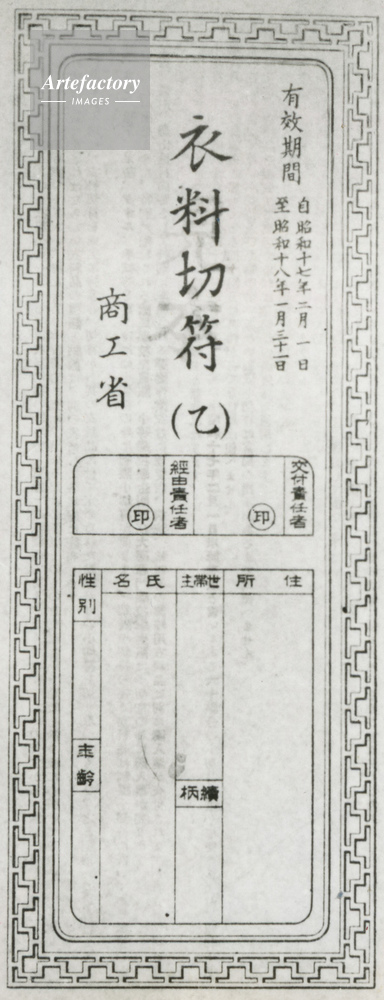 Artefactory
IMAGES
有效期間
自昭和十七年二月一日
至昭和十八年一月三十一日
衣料切符(乙)
商工省
交付責任者
印
經由責任者
印
住所
世帶主
續柄
氏名
性別
年齡